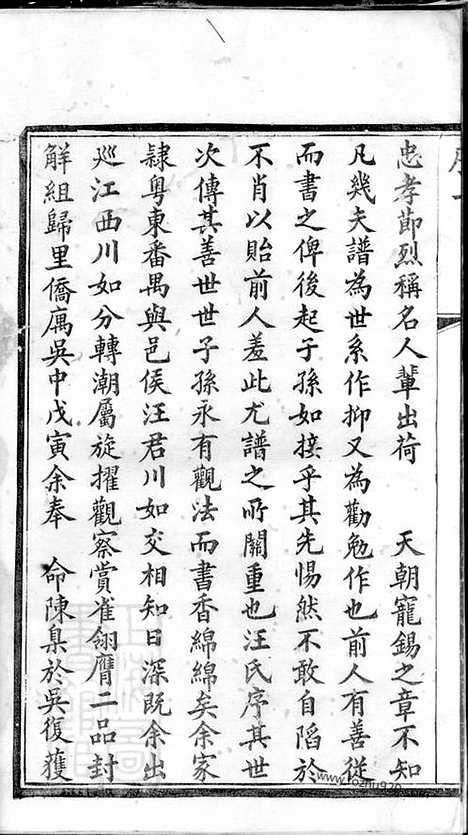 忠孝節烈稱名人輩出荷　天朝寵錫之章不知
凡幾夫譜為世系作抑又為勸勉作也前人有善從
而書之俾後起子孫如接乎其先惕然不敢自陷於
不肖以貽前人羞此尤譜之所關重也汪氏序其世
次傳其善世世子孫永有觀法而書香綿綿矣余家
隸粵東番禺與邑侯汪君川如交相知日深既余出
巡江西川如分轉潮屬旋擢觀察賞雀翎膺二品封
解組歸里僑寓吳中戊寅余奉　命陳臬於吳復獲